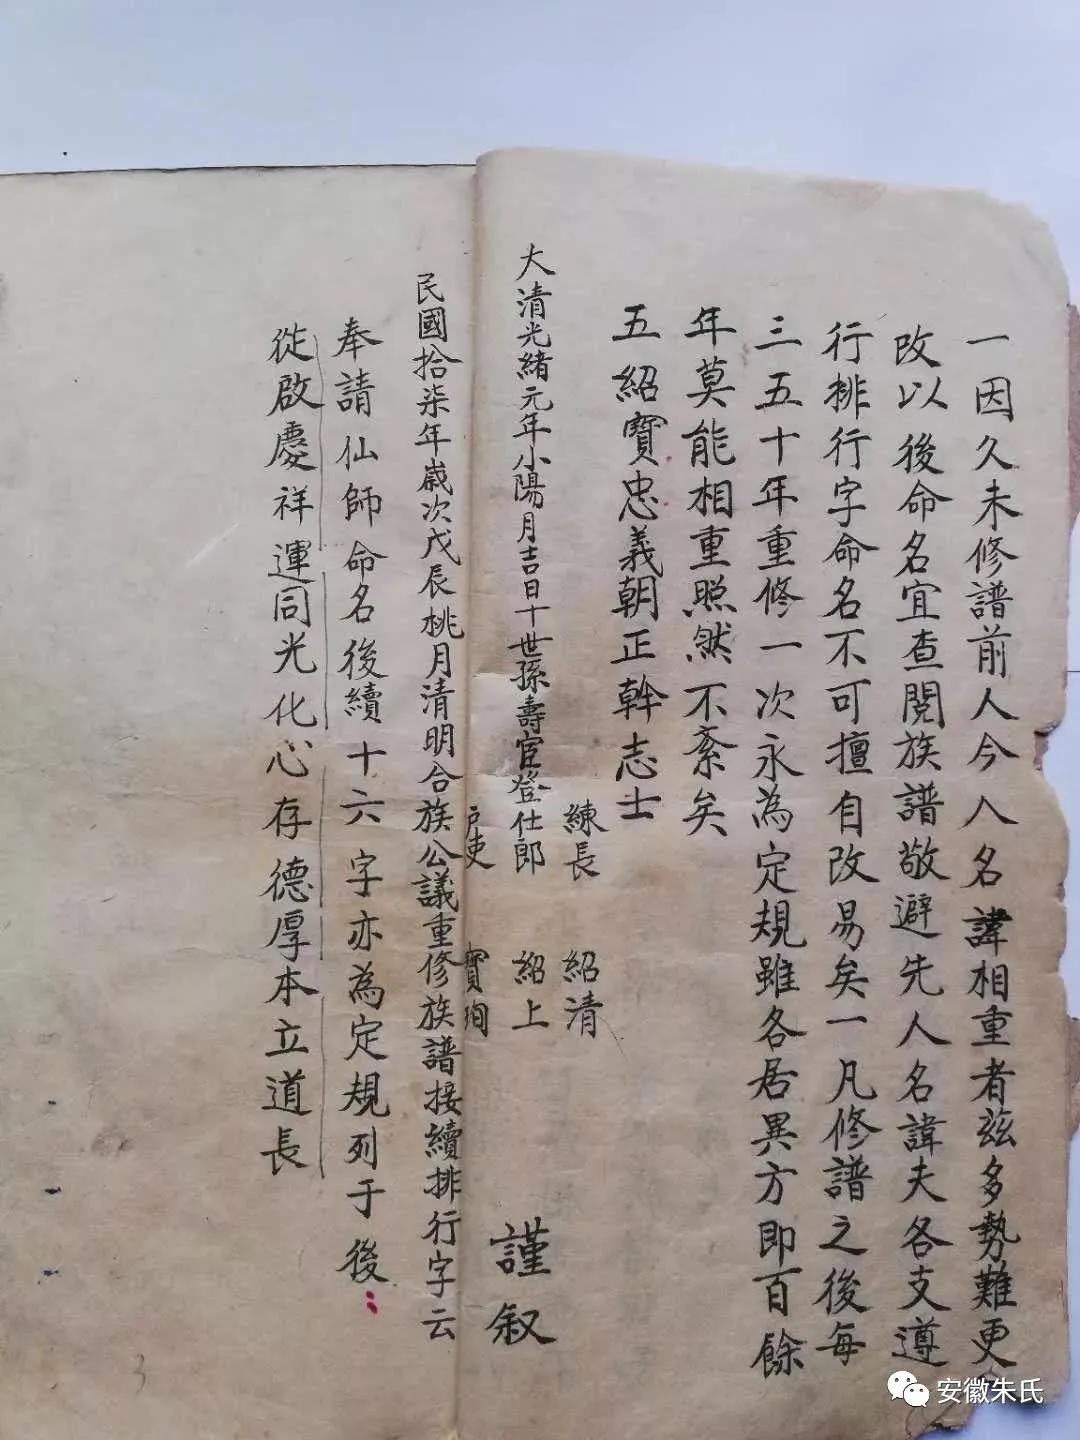 一因久未修譜前人今人名諱相重者兹多勢難更
改以後命名宜查閱族譜敬避先人名諱夫各支遵
行排行字命名不可擅自改易矣一凡修譜之後每
三五十年重修一次永為定規雖各居異方即百餘
年莫能相重照然不紊矣
五紹寶忠義朝正幹志士
練長 紹清
大清光緒元年小陽月吉日十世孫壽官登仕郎 紹上 謹叙
戶吏 寶珣
民國拾柒年歲次戊辰桃月清明合族公議重修族譜接續排行字云
奉請仙師命名後續十六字亦為定規列于後
從啟慶祥運同光化心存德厚本立道長
3
安徽朱氏